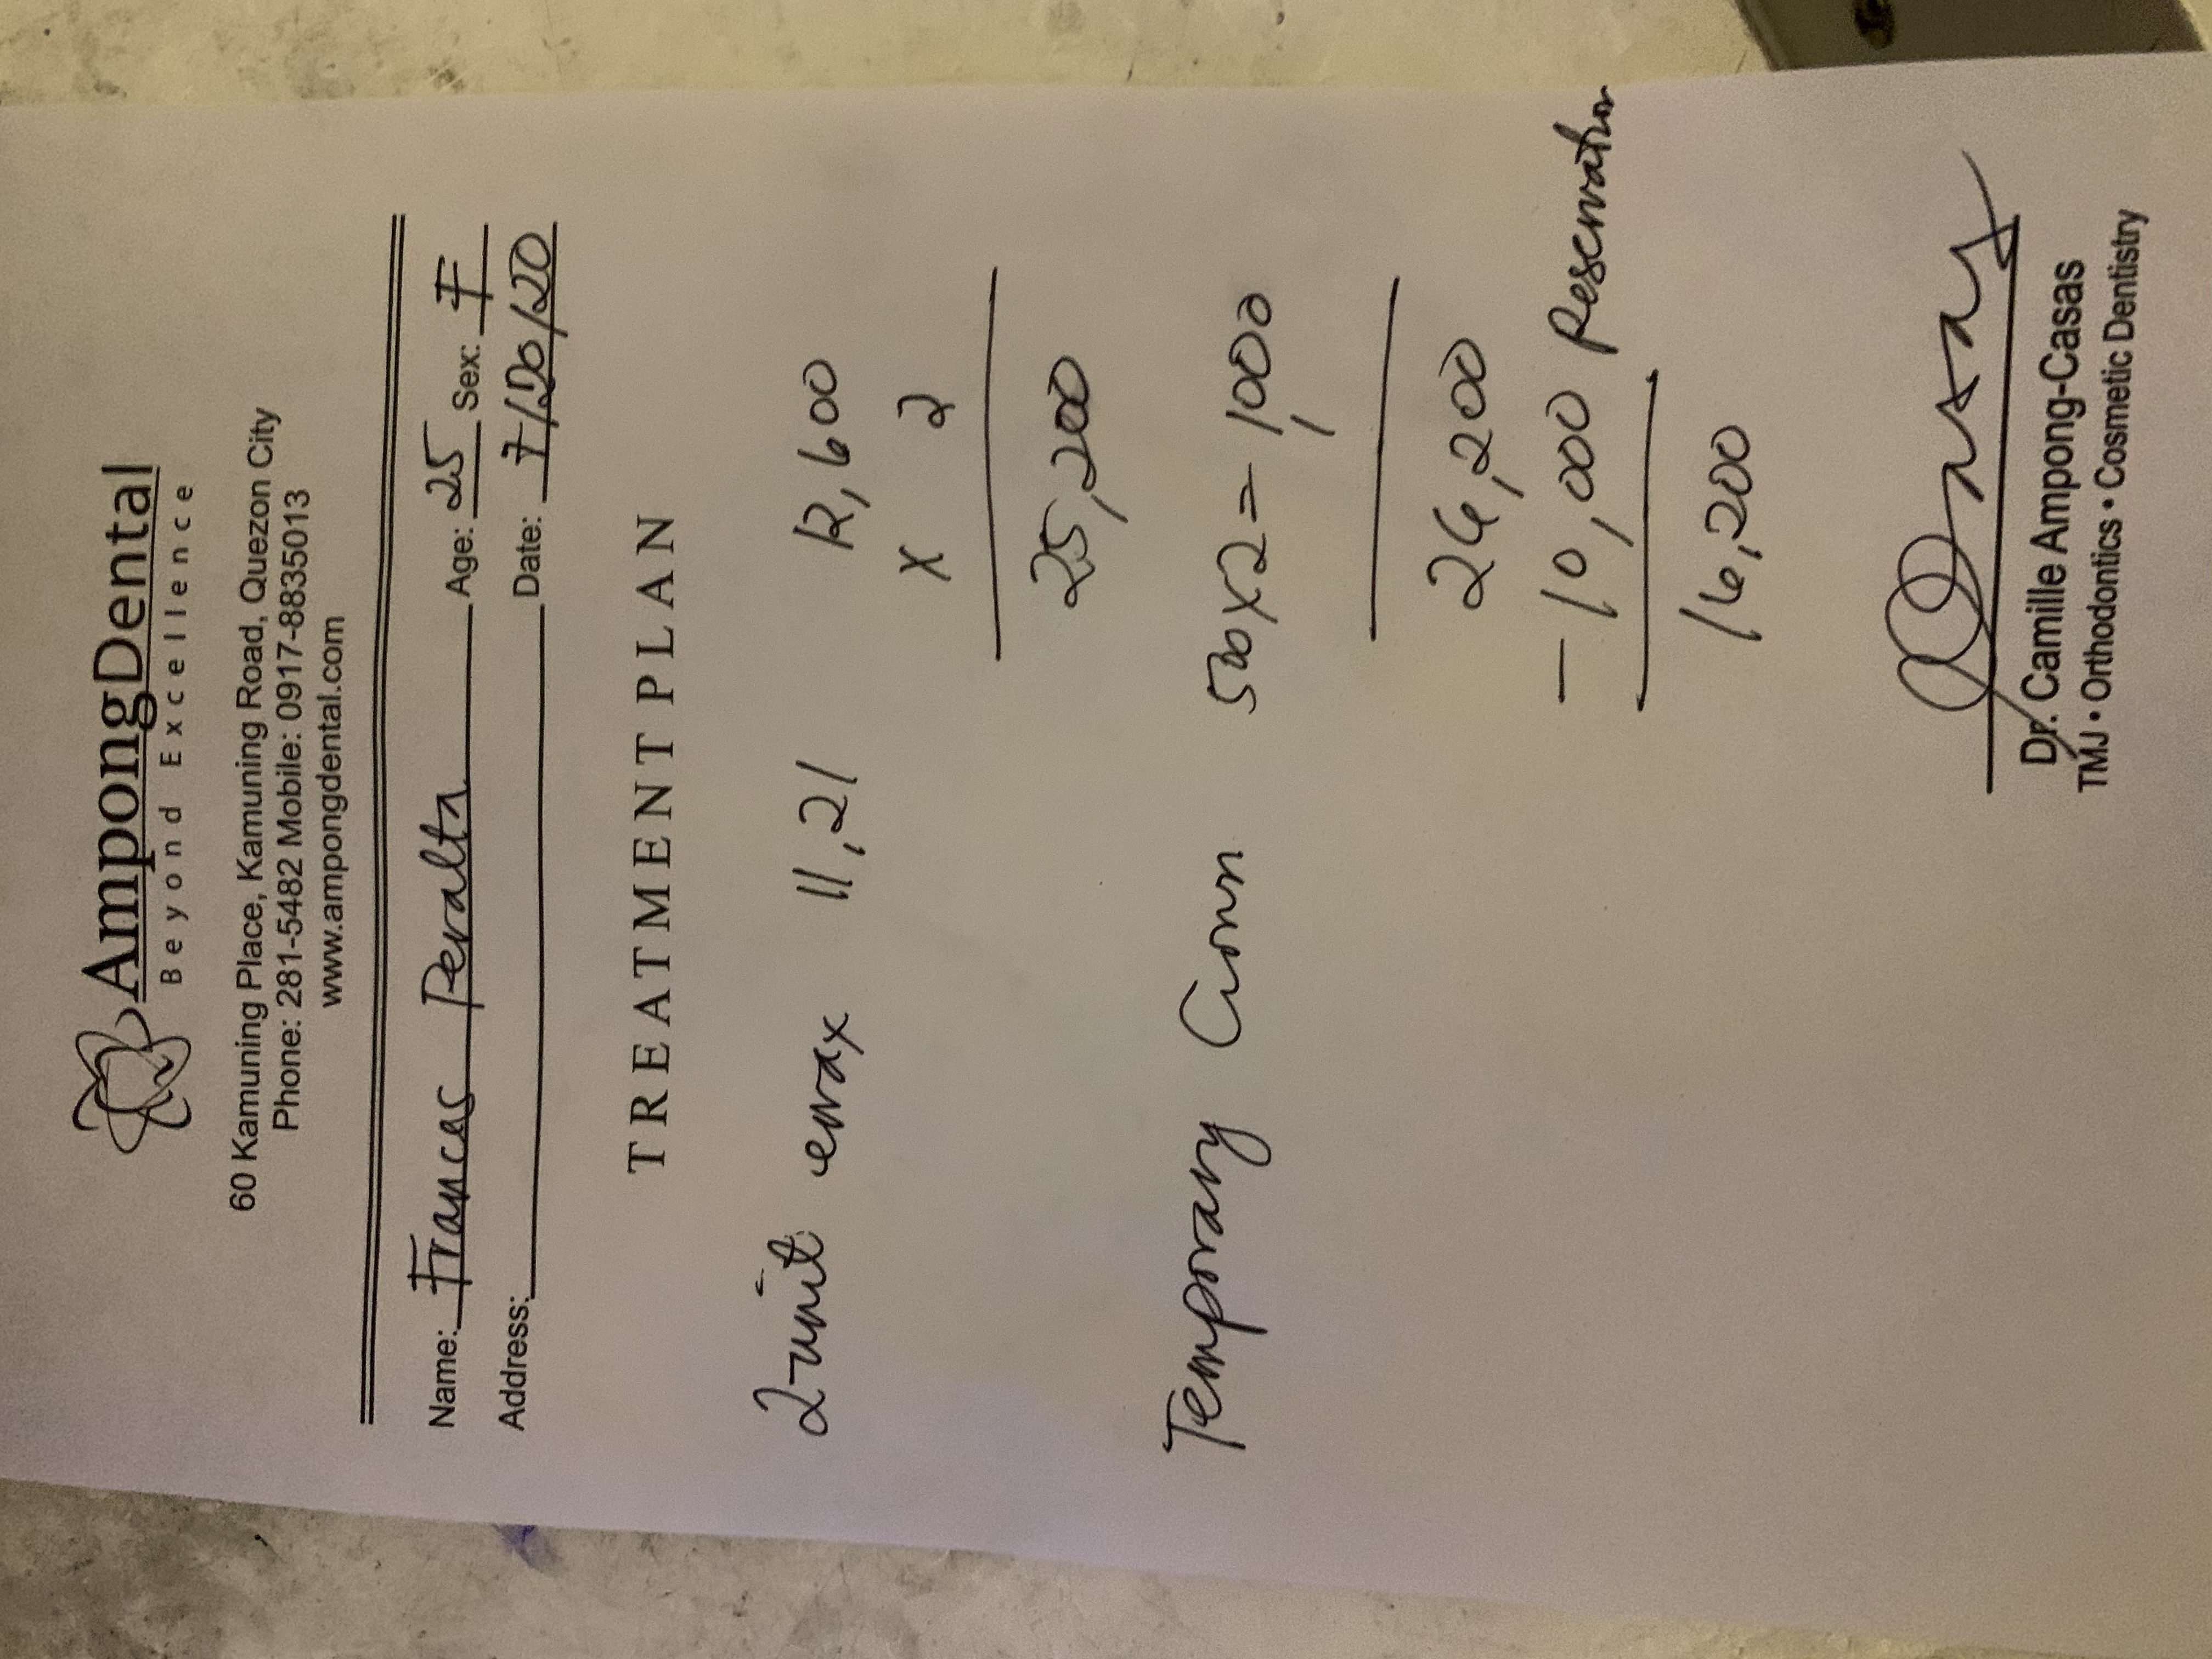 AmpongDental
Beyond Excellence
60 Kamuning Place, Kamuning Road, Quezon City
Phone: 281-5482 Mobile: 0917-8835013
www.ampongdental.com
Name: Frances Peralta Age: 25 Sex: F
Address: Date: 7/20/20
TREATMENT PLAN
2-unit emax 11,21 12,600
x 2
25,200
Temporary Crown 500x2 = 1000
26,200
- 10,000 Reservation
16,200
Casas
Dr. Camille Ampong-Casas
TMJ • Orthodontics • Cosmetic Dentistry